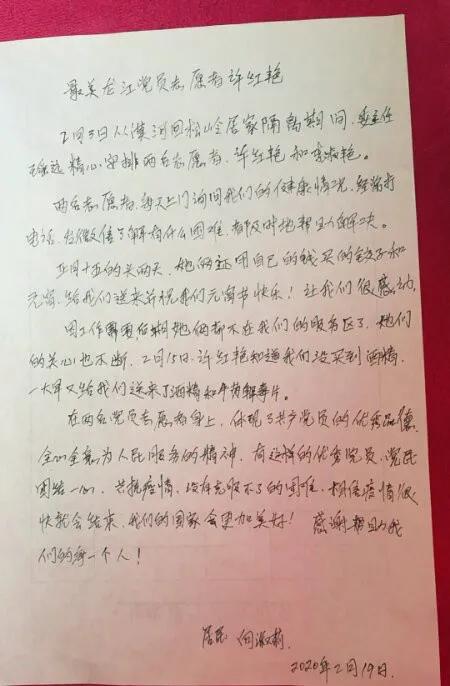 最美龙江党员志愿者许红艳
2月3日从漠河回松岭居家隔离期间,委主任
精心安排两名志愿者,许红艳和李淑艳。
两名志愿者,每天上门询问我们的健康情况,经常打
电话、发微信了解有什么困难,都及时地帮助解决。
正月十五的头两天,她俩还用自己的钱买的饺子和
元宵,给我们送来并祝我们元宵节快乐!让我们很感动,
因工作需要她俩都不在我们的服务区了,她们
的关心也不断,2月15日,许红艳知道我们没买到酒精,
一大早又给我们送来了酒精和片。
在两名党员志愿者身上,体现了共产党员的优秀品德,
全心全意为人民服务的精神,有这样的优秀党员,党民
团结一心,共抗疫情,没有克服不了的困难,相信疫情很
快就会结束,我们的国家会更加美好!感谢帮助我
们的每一个人!
居民 淑莉
2020年2月19日.